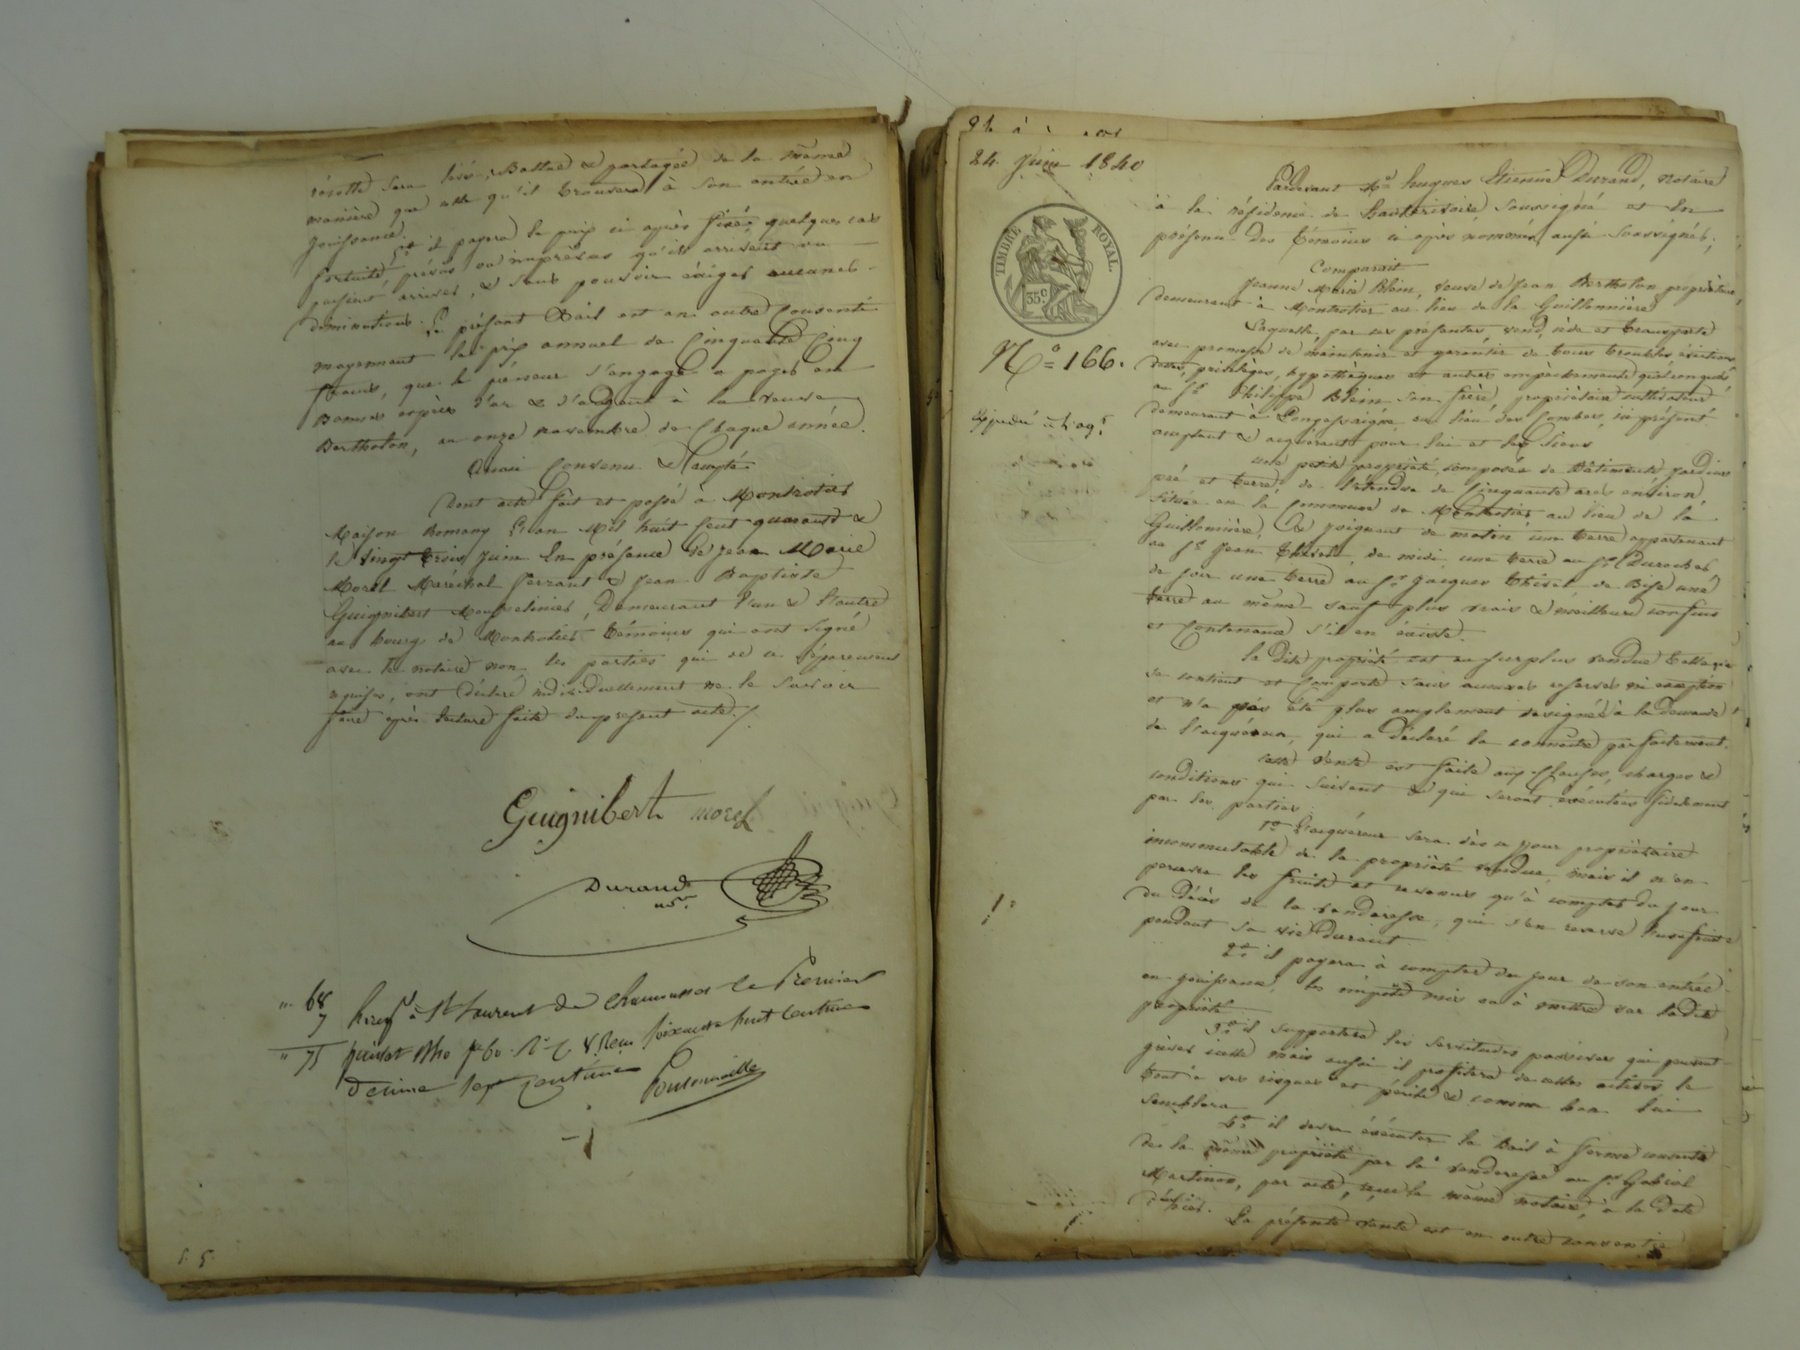 récolte sera liée, Battue & partagée de la même
manière que celle qu'il trouvera à son entrée en
jouissance.
5° il payera le prix ci après fixé, quelques cas
fortuits prévus ou imprévus qu'ils arrivent ou
puissent arriver, & sans pouvoir éxiger aucunes
diminutions. Le présent Bail est en outre consenti
moyennant le prix annuel de Cinquante Cinq
francs, que le preneur s'engage a payer en
Bonnes espèces d'or & d'argent à la veuve
Bertholon, au onze novembre de Chaque année.
Ainsi Convenu & accepté.
Dont acte fait et passé à Montrotier
Maison Romany L'an Mil huit Cent quarante &
le vingt trois Juin En présence de Jean Marie
Morel Maréchal ferrant & Jean Baptiste
Guignibert Demeurant l'un & l'autre
au bourg de Montrotier témoins qui ont signé
avec le notaire non les parties qui de ce séparement
requises, ont déclaré individuellement ne le savoir
faire après lecture faite du présent acte./.
Guignibert morel
Durand
nore
" 68
7
" 75
Enregé à St Laurent de Chamousset le Premier
juillet 1840 fo 60 Ro C. 8 Reçu soixante huit centimes
décime sept centimes
S. S.
24 Juin 1840
TIMBRE ROYAL.
35c
No = 166.
Expédié à l'aqr
Pardevant Me hugues Etienne Durand, Notaire
à la résidence de hauterivoire, soussigné et en
présence des témoins ci après nommés, aussi soussignés;
Comparait
Jeanne Marie Blein, veuve de Jean Bertholon propriétaire,
demeurant à Montrotier au lieu de la Guillonnière
Laquelle, par ces présentes, vend, cède et transporte
avec promesse de maintenir et garantir de tous troubles évictions
dettes, privilèges, hypothèques et autres empêchements quelconques
au Sr Philippe Blein son frère, propriétaire cultivateur
demeurant à Longessaigne au lieu des Combes, ici présent
acceptant & acquérant pour lui et les siens
une petite propriété, composée de Bâtiments jardins
pré et terre, de l'étendue de Cinquante ares environ,
située en la Commune de Montrotier au lieu de la
Guillonnière, & joignant de matin une terre appartenant
au Sr Jean de midi une terre au Sr Duroches
de soir une terre au Sr Jacques de Bise une
terre au même sauf plus vrais & meilleurs confins
et Contenance s'il en éxiste.
La dite propriété est au surplus vendue telle que
se contient et Comporte sans aucunes reserves ni exception
et n'a pas été plus amplement désignée à la demande
de l'acquéreur, qui a déclaré la connaitre parfaitement.
Cette Vente est faite aux Clauses, charges &
conditions qui suivent & qui seront exécutées fidèlement
par les parties
1° L'acquéreur sera dès ce jour propriétaire
incommutable de la propriété vendue, mais il n'en
percevra les fruits et revenus qu'à compter du jour
du Décès de la venderesse, qui s'en reserve l'usufruit
pendant sa vie durant
2° il payera à compter du jour de son entrée
en jouissance, les impôts mis ou à mettre sur ladite
propriété
3° il supportera les servitudes passives qui peuvent
grever icelle mais aussi il profitera de celles actives le
tout à ses risques et périls & comme bon lui
semblera
4° il devra éxécuter le Bail à ferme consenti
de la même propriété par la venderesse au Sr Gabriel
Martinon, par acte, reçu le même notaire, à la date
d'hier.
La présente vente est en outre consentie